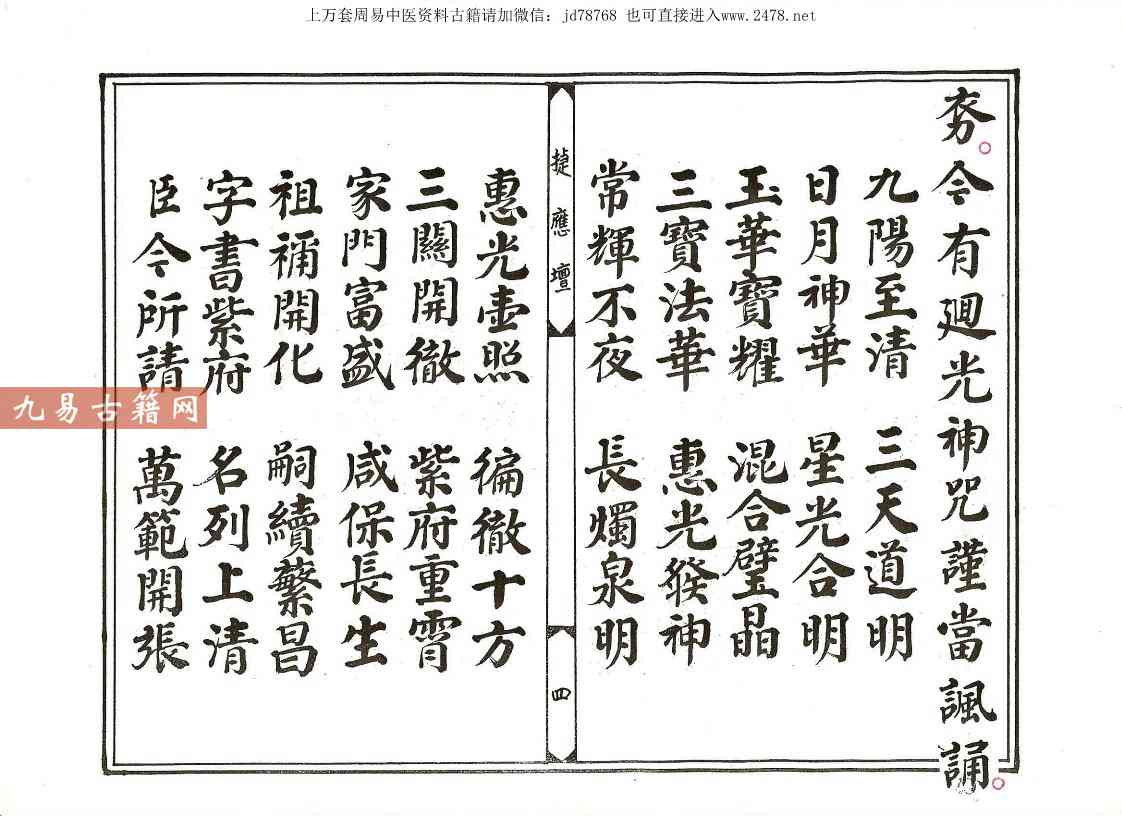 上万套周易中医资料古籍请加微信：jd78768 也可直接进入www.2478.net
夯。今有廻光神咒謹當諷誦。
九陽至清 三天道明
日月神華 星光合明
玉華寶耀 混合璧晶
三寶法華 惠光發神
常輝不夜 長燭泉明
捷應壇
四
惠光壷照 徧徹十方
三關開徹 紫府重霄
家門富盛 咸保長生
祖禰開化 嗣續蘩昌
字書紫府 名列上清
臣今所請 萬範開張
九易古籍网